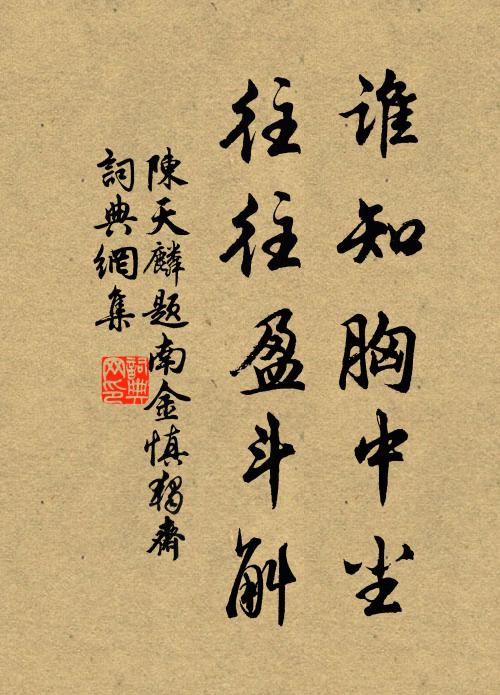 谁知胸中尘
往往盈斗斛
陳天麟題南金慎獨齋
詞典網集
詞典网印